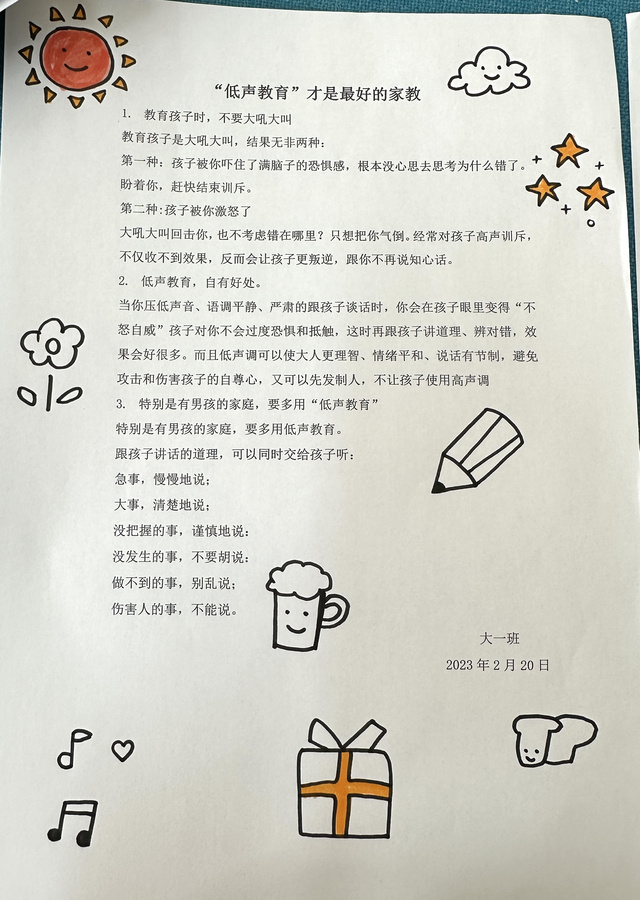 “低声教育”才是最好的家教
1. 教育孩子时，不要大吼大叫
教育孩子是大吼大叫，结果无非两种：
第一种：孩子被你吓住了满脑子的恐惧感，根本没心思去思考为什么错了。
盼着你，赶快结束训斥。
第二种：孩子被你激怒了
大吼大叫回击你，也不考虑错在哪里？只想把你气倒。经常对孩子高声训斥，
不仅收不到效果，反而会让孩子更叛逆，跟你不再说知心话。
2. 低声教育，自有好处。
当你压低声音、语调平静、严肃的跟孩子谈话时，你会在孩子眼里变得“不
怒自威”孩子对你不会过度恐惧和抵触，这时再跟孩子讲道理、辨对错，效
果会好很多。而且低声调可以使大人更理智、情绪平和、说话有节制，避免
攻击和伤害孩子的自尊心，又可以先发制人，不让孩子使用高声调
3. 特别是有男孩的家庭，要多用“低声教育”
特别是有男孩的家庭，要多用低声教育。
跟孩子讲话的道理，可以同时交给孩子听：
急事，慢慢地说；
大事，清楚地说；
没把握的事，谨慎地说：
没发生的事，不要胡说：
做不到的事，别乱说；
伤害人的事，不能说。
大一班
2023 年 2 月 20 日